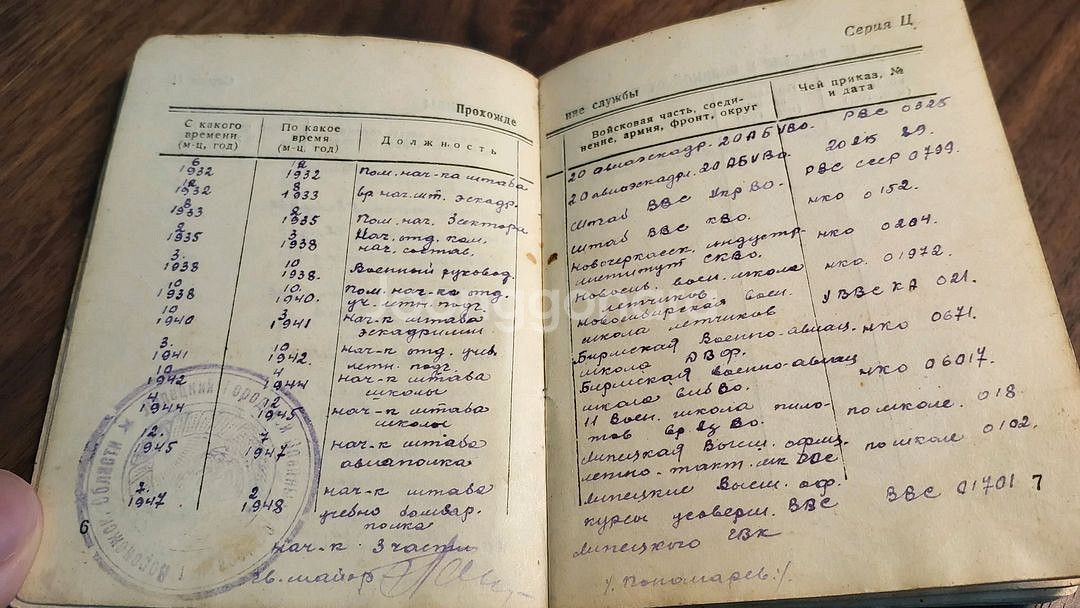 Серия Ц
Прохожде
ние службы
С какого
времени
(м-ц, год)
По какое
время
(м-ц, год)
Должность
6
1932
12
1932
Пом. нач-ка штаба
12
1932
8
1933
вр нач. шт. эскадр.
8
1933
2
1935
Пом. нач. 3 сектора
2
1935
3
1938
Нач. отд. ком.
нач. состав.
3.
1938
10
1938.
Военный руковод.
10
1938
10.
1940.
пом. нач-ка отд.
уч. летн. подг.
10
1940
3
1941
нач-к штаба
эскадрилии
3.
1941
10
1942.
нач-к отд. учеб.
летн. подг.
10
1942
4
1944
нач-к штаба
школы
4
1944
12
1945
нач-к штаба
школы
12.
1945
7
1947
нач-к штаба
авиаполка
7.
1947
2
1948
нач-к штаба
учебно бомбар.
полка
6
нач-к 3 части
гв. майор
Войсковая часть, соеди-
нение, армия, фронт, округ
Чей приказ, №
и дата
20 авиаэскадр. 20 АБ УВО. РВС 0325
20 авиаэскадр. 20 АБ УВО. 20 АБ 29.
Штаб ВВС УкрВО. РВС СССР 0799.
Штаб ВВС КВО. НКО 0152.
Новочеркасск. индустр.
институт СКВО. НКО 0284.
Новосиб. воен. школа
летчиков НКО. 01972.
Новосибирская воен.
школа летчиков УВВС КА 021.
Бирмская Военно-авиац.
школа ДВФ. НКО 0671.
Бирмская военно-авиац
школа НКО 06017.
11 Воен. школа пило-
тов по школе. 018.
Липецкая Высш. офиц.
летно-такт. шк ВВС по школе 0102.
Липецкие Высш. оф.
курсы усоверш. ВВС ВВС 01701
7
Липецкого ГВК
/. Пономарев./.